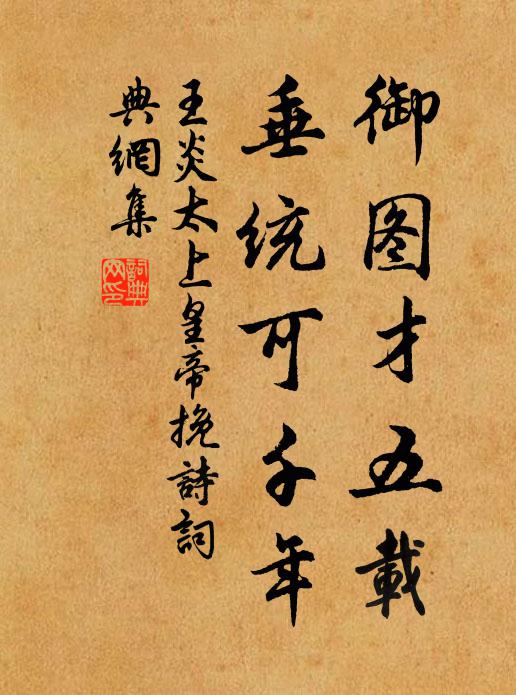 御图才五載
垂统可千年
王炎太上皇帝挽詩詞
典網集
詞典网印